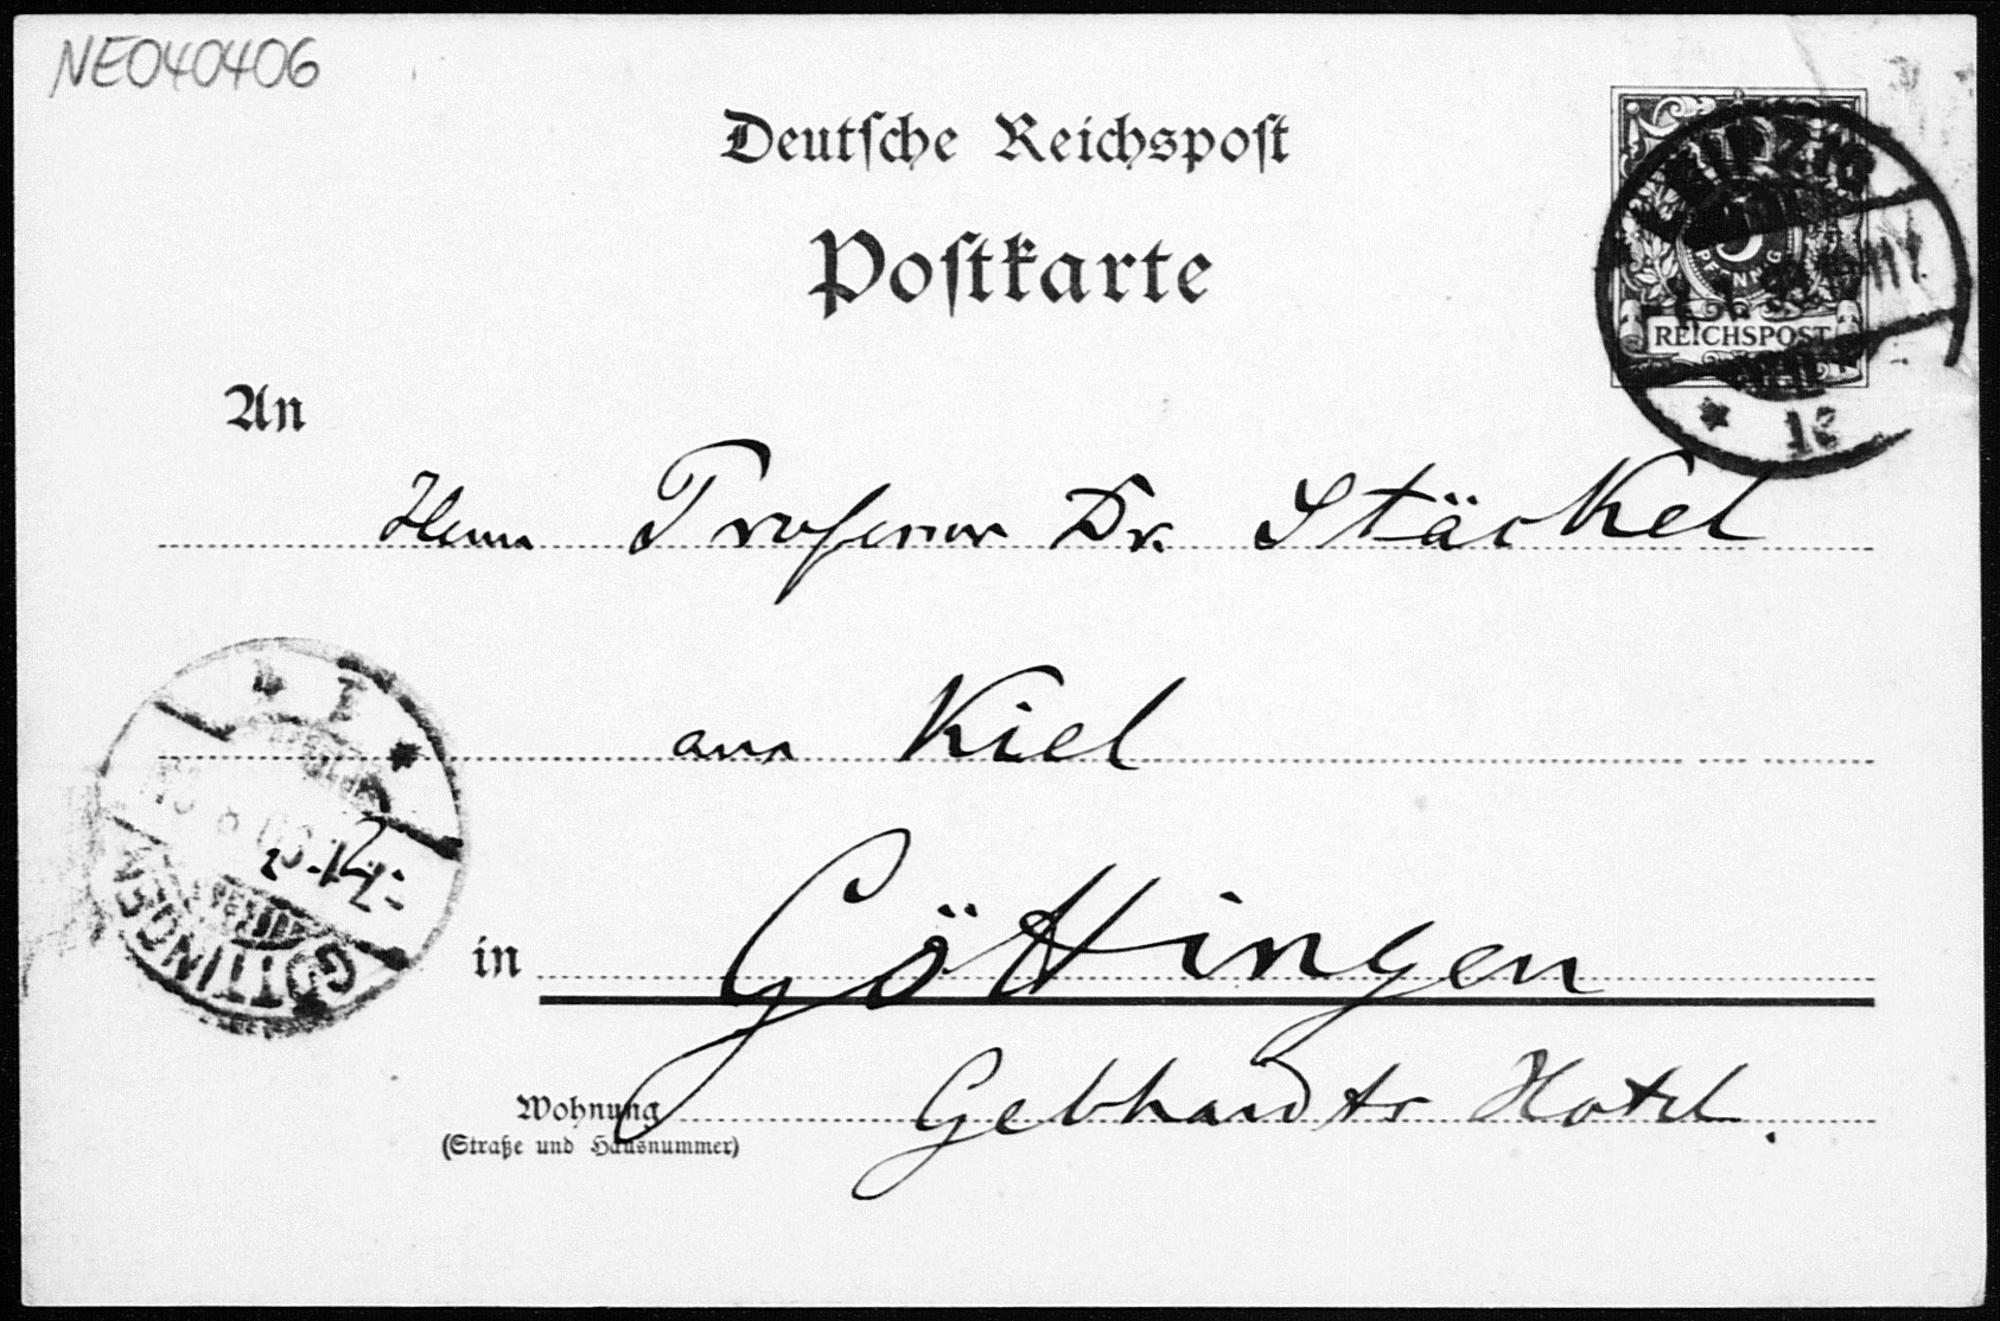 NE040406
Deutsche Reichspost
Postkarte
LEIPZIG
5
PFENNIG
REICHSPOST
* 12
An
Herrn Professor Dr. Stäckel
aus Kiel
GÖTTINGEN
in Göttingen
Wohnung Gebhardts Hotel.
(Straße und Hausnummer)